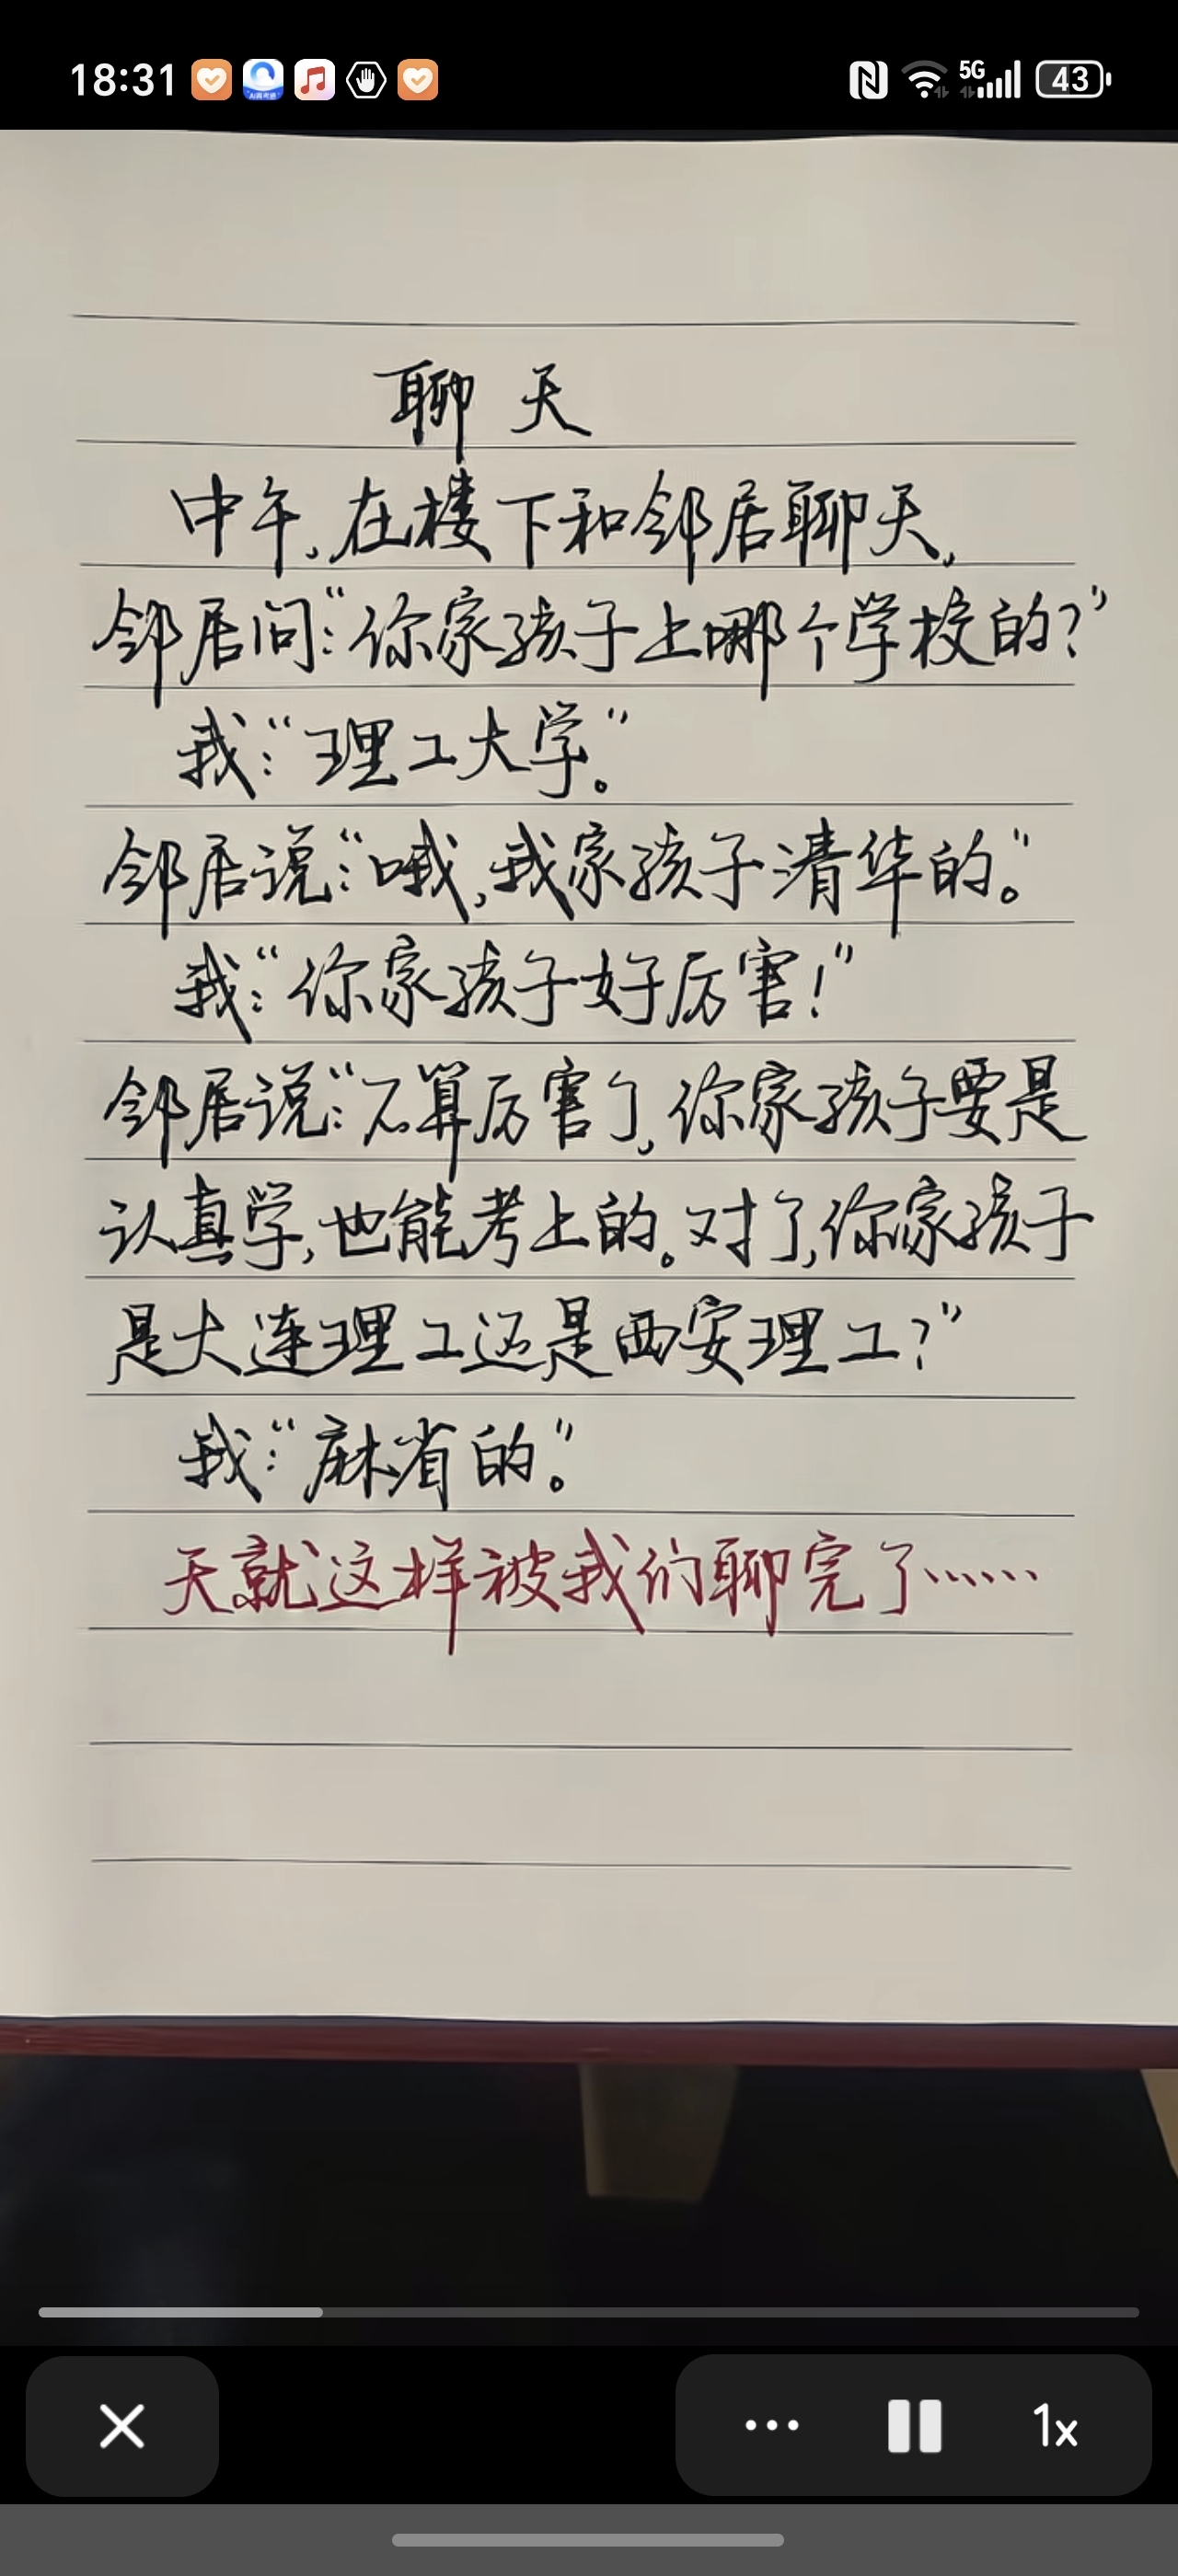 18:31
5G
43
聊天
中午,在楼下和邻居聊天,
邻居问:“你家孩子上哪个学校的?”
我:“理工大学。”
邻居说:“哦,我家孩子清华的。”
我:“你家孩子好厉害!”
邻居说:“不算厉害了,你家孩子要是
认真学,也能考上的。对了,你家孩子
是大连理工还是西安理工?”
我:“麻省的。”
天就这样被我们聊完了……
1x